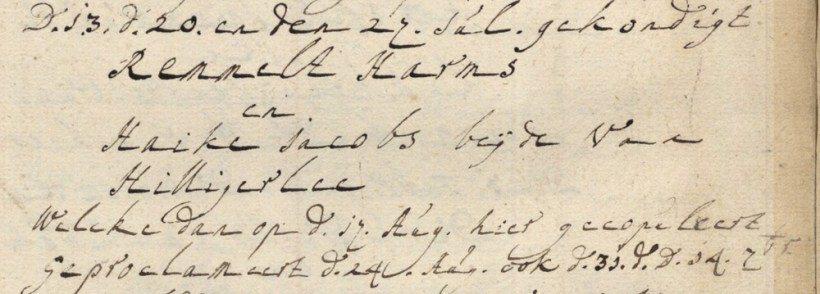 D. 13. d. 20. en den 27. Jul. gekondigt
Remmelt Harms
en
Haike Jacobs beyde van
Hilligerlee
Welcke dan op d. 17. Aug. hier gecopeleert
geproclameert d. 24. Aug. ook d. 31. d. D. 14. 7